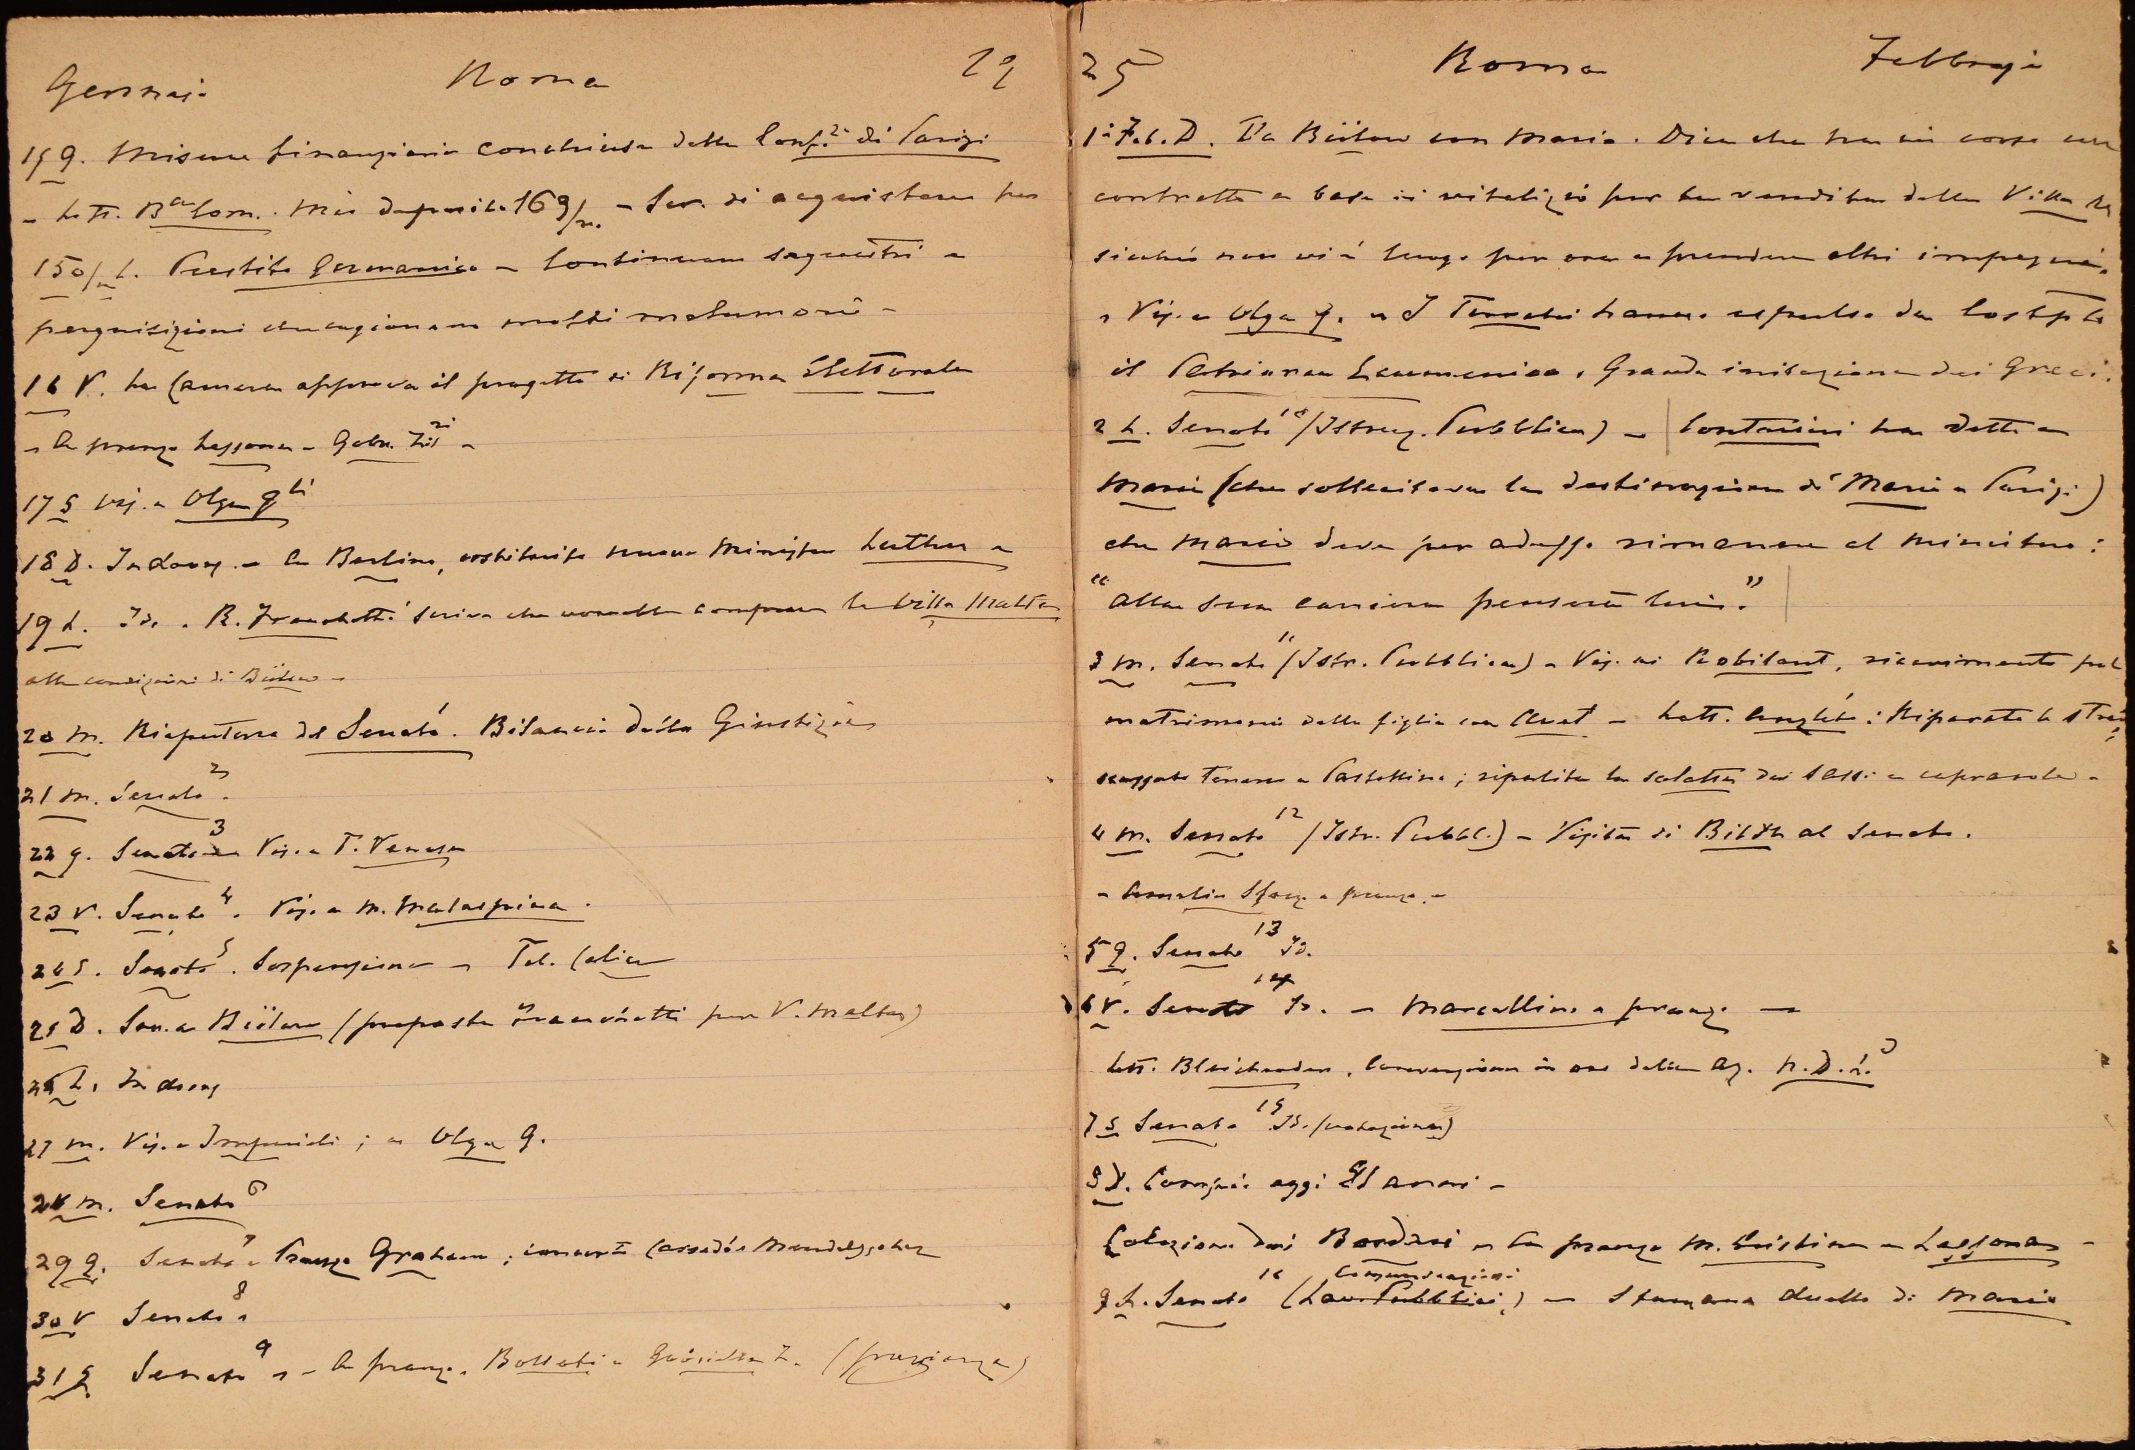 Gennaio Roma 19
15 G. Misure finanziarie conchiuse della Conf.za di Parigi
- Lett. B.ca Com. Mio deposito 169/m. - Scr. di acquistare per
150/m L. Prestito Germanico - Continuano sequestri e
perquisizioni che cagionano molti malumori -
16 V. La Camera approva il progetto di Riforma Elettorale
- A pranzo Lessona - Gabr.
17 S Vis. a Olga G.li
18 D. Indoors - A Berlino, costituito nuovo Ministero Luther -
19 L. Id. - R. Franchetti scrive che vorrebbe comprare la Villa Malta
alle condizioni di Bülow -
20 M. Riapertura del Senato. Bilancio della Giustizia
21 M. Senato 2.
22 G. Senato 3 Vis. a T. Venosa
23 V. Senato 4. Vis. a M. Malaspina.
24 S. Senato 5. Sospensione - Tel.
25 D. Scr. a Bülow (proposta Franchetti per V. Malta)
26 L. Indoors
27 M. Vis. a Imperiali; a Olga G.
28 M. Senato 6
29 G. Senato 7 - Pranzo Graham; concerto Cassadó e Mendelssohn
30 V Senato 8.
31 S Senato 9. - A pranzo. Bollati - Gabriella
25 Roma Febbraio
1° Feb. D. Da Bülow con Mario. Dice che ha in corso un
contratto a base di vitalizio per la vendita della Villa
sicché non vi è luogo per ora a prendere altri impegni.
- Vis. a Olga G. - I Turchi hanno espulso da Costp.li
il Patriarca Ecumenico. Grande irritazione dei Greci.
2 L. Senato 10 (Istruz. Pubblica) - Contarini ha detto a
(che sollecitava la destinazione di Mario a Parigi)
che Mario deve per adesso rimanere al Ministero:
"Alla sua carriera penserà lui."
3 M. Senato 11 (Istr. Pubblica) - Vis. ai Robilant, ricevimento pel
matrimonio della figlia con - Lett. : Riparato la
Castellino; ripulita la salotta dei
4 M. Senato 12 (Istr. Pubbl.) - Visita di al Senato.
- Amalia Sforza a pranzo. -
5 G. Senato 13 Id.
6 V. Senato 14 Id. - Marcellino a pranzo -
Lett. Bleichroeder. Conversione in oro delle Az. N. D. L.
7 S Senato 15 Id. (votazione)
8 D. Compio oggi anni -
Colazione dai Bordari - A pranzo M. Cristina - Lessona -
9 L. Senato 16 (Lav. Pubblici) Comunicazioni - Stamane duello di Mario